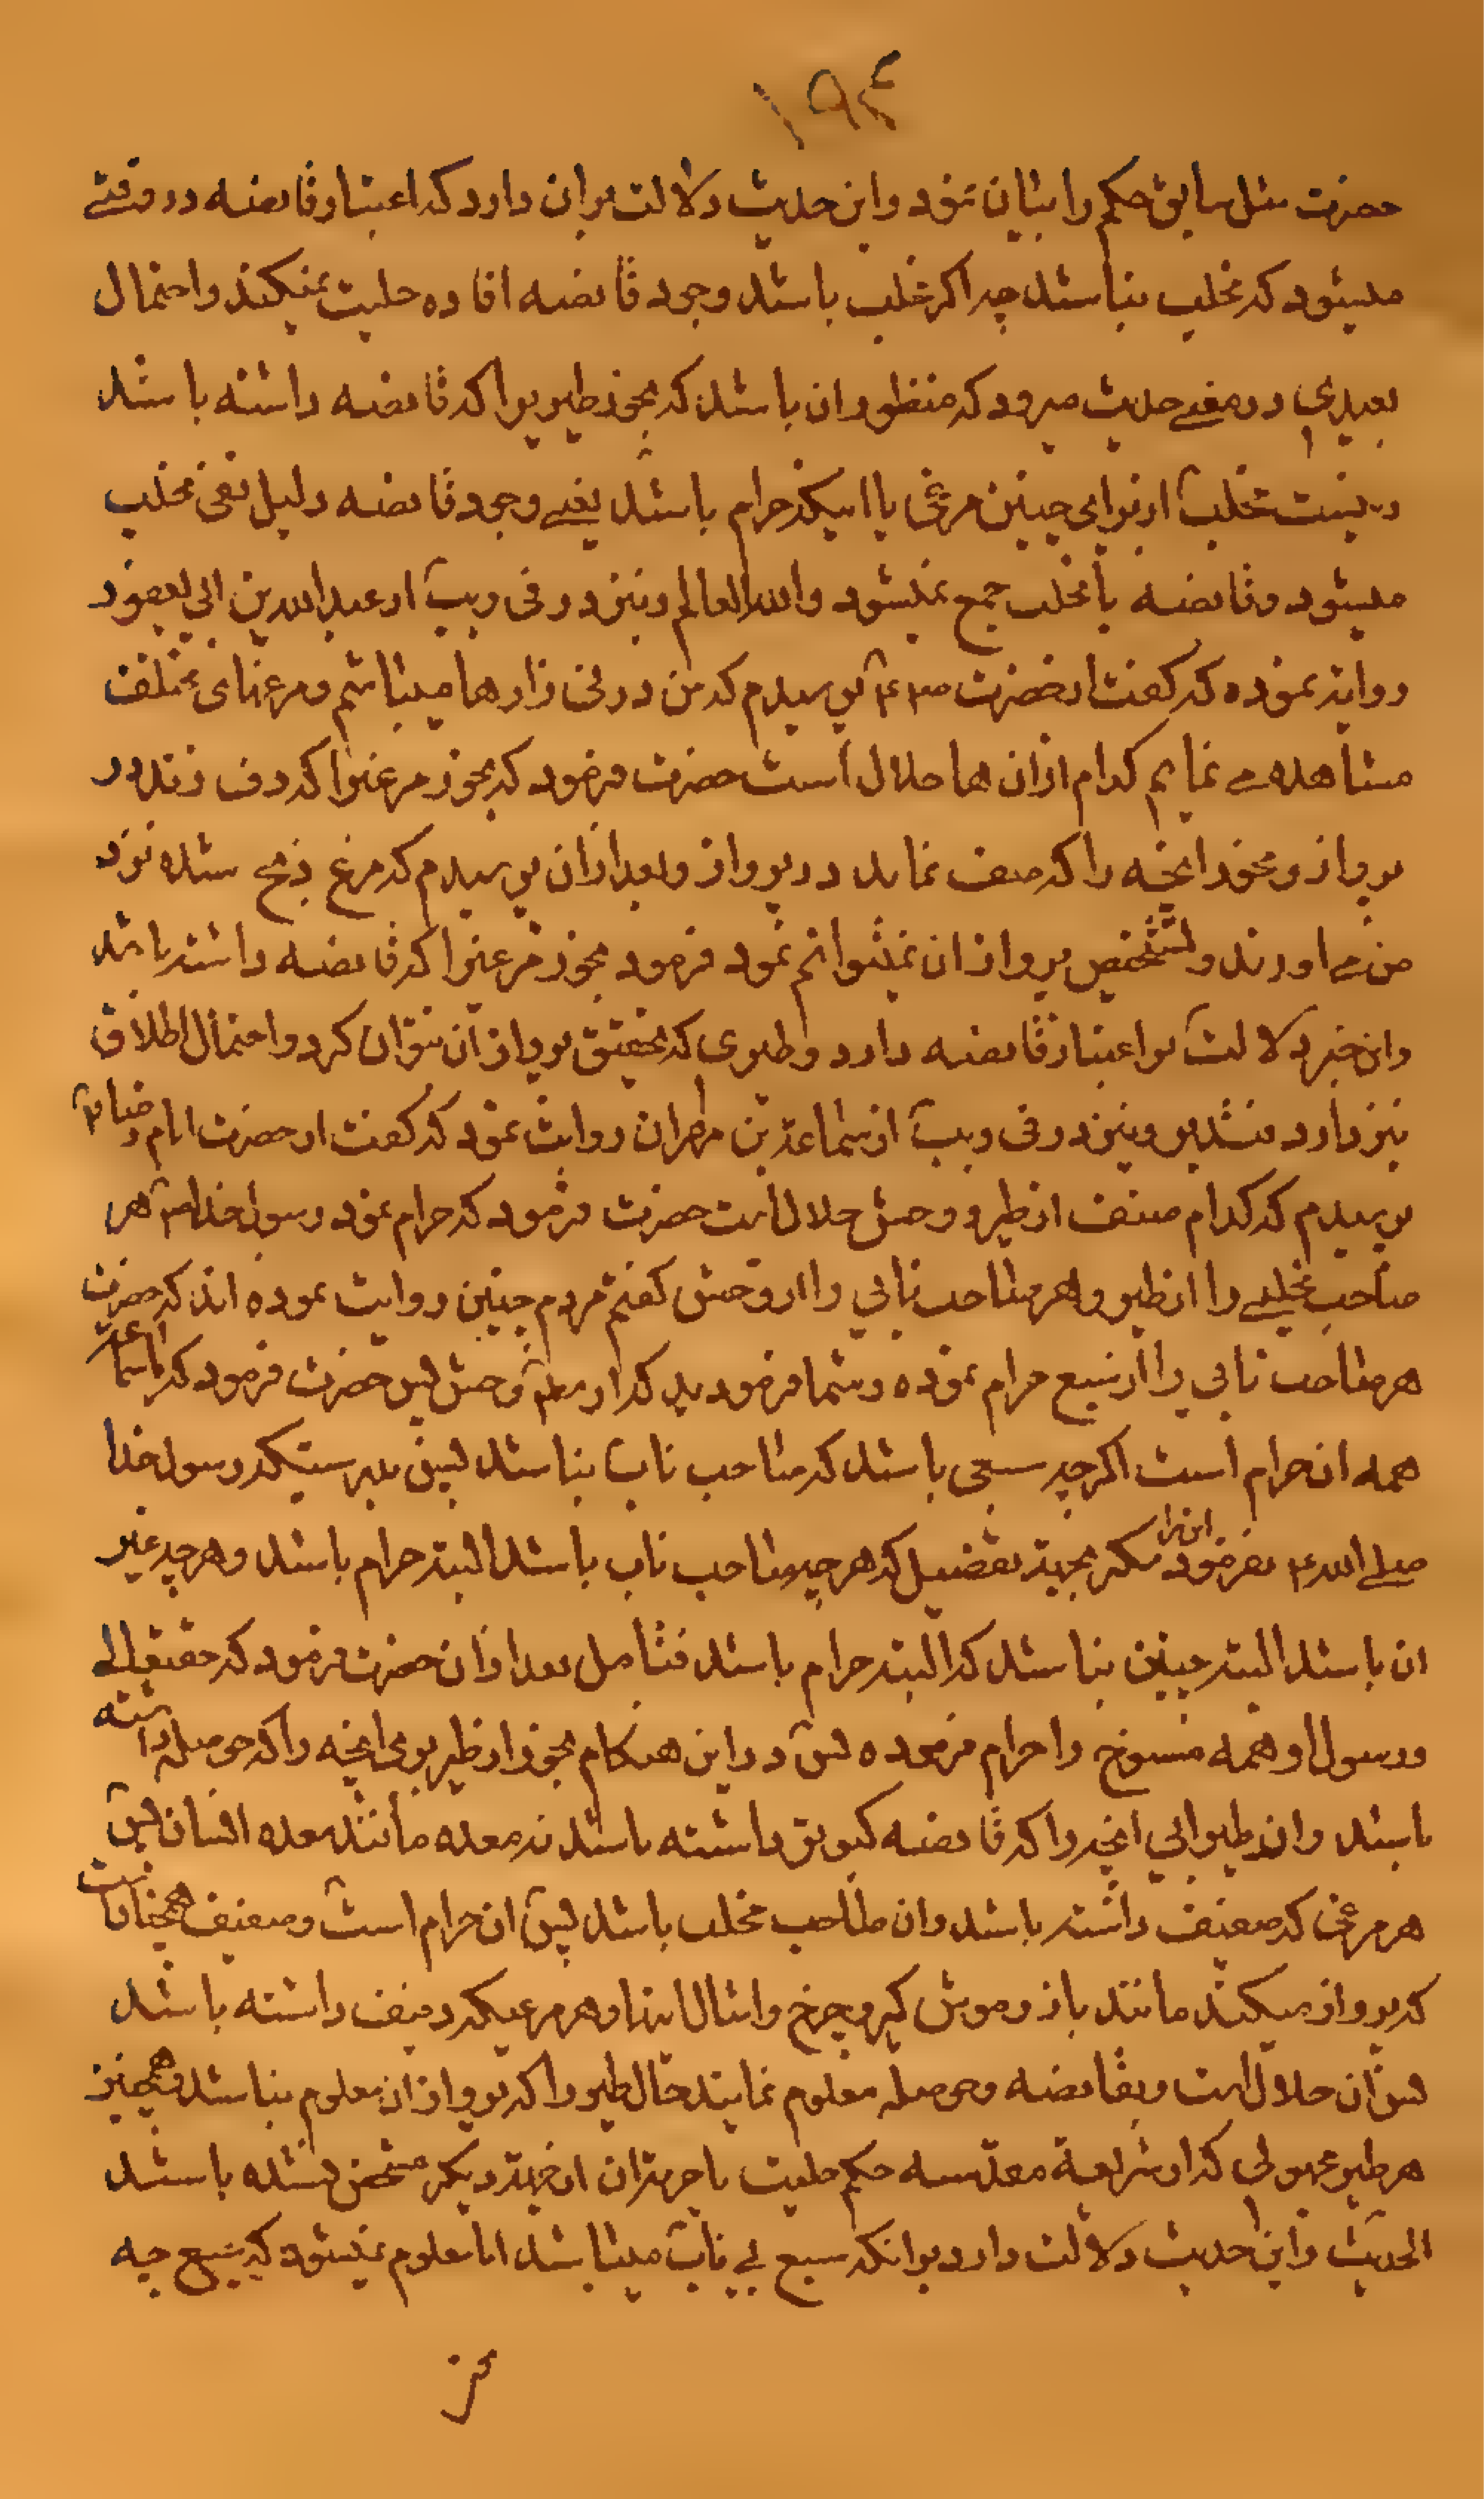 ۱۹۴
حضرت مثل سابق حکم را بیان نمود واین حدیث دلالت بران دارد که اعتبار قانصه در وقتے
میشود که مخلب نباشد چه اکر مخلب باشد وجود قانصه افاده حلیت نمیکند واحتمال
بعیدی در معنے حدیث میرود که منظور ان باشد که بخور طیریرا که قانصه داشته باشد
ونیست مخلب از برای چنین مرغی یا اینکه حرام باشد یعنے وجود قانصه دلیل نفی مخلب
میشود وقانصه با مخلب جمع نمیشود والله العالم ونیز در فی ویب از عبدالله بن ابی یعفور
روایة نموده که کفت انحضرت پرسیدم که من در نی زارها میباشم ومرغهای مختلف
مشاهده مے نمایم کدام ازان ها حلال است حضرت فرمود که بخور مرغیرا که دف زند در
پرواز ومخور انچه را که صف نماید در پرواز وبعد ازان پرسیدم که مرغ ذبح شده نزد
من مے اورند وتشخیص پرواز ان نمیتوانم نمود فرمود بخور مرغیرا که قانصه داشته باشد
واین خبر دلالت بر اعتبار قانصه دارد وطیری که تحقیق پرواز آن نتوان کرد واحتمال اطلاق
نیز دارد فتدبر ونیز در فی ویب از سماعة بن مهران روایت نمود که کفت از حضرت امام رضا
پرسیدم که کدام صنف از طیر و وحش حلال است حضرت فرمود که حرام نمود رسول خدا هر
صاحب مخلبے را از طیر وهر صاحب نابی را از وحش کفتم مردم چنین روایت نموده اند که حضرت
هر صاحب نابی را از سبع حرام نموده وشما فرمودید که از وحش پس حضرت فرمود که ای سماعة
همه ان حرام است اکرچه سبعی باشد که صاحب ناب نباشد پس بدرستیکه رسول خدا
صلے الله نفرمود انرا مکر بجهة تفضیل که هر چه صاحب ناب باشد البته حرام باشد وهرچه غیر
ان باشد البته چنین نباشد که البته حرام باشد فتامل بعد ازان حضرت فرمود که حقتعالے
ورسول او همه مسوخ را حرام فرموده پس در این هنکام بخور از طیر بری انچه را که حوصله داشته
باشد وان طیر ابی انچه را که قانصه کبوتر داشته باشد نه معده مانند معده انسان پس
هر مرغی که صفیف داشته باشد وان صاحب مخلب باشد پس ان حرام است وصفیف همچنانست
که پرواز میکند مانند باز وموش کیر وچرخ وامثال اینها وهر مرغیکه دفیف داشته باشد
پس ان حلال است وبقانصه وحوصله معلوم نمایند حال طیر را که پرواز ان معلوم نباشد وهمچنین
هر طیر مجهولی که از شریعة مقدسه حکم حلیت یا حرمة ان از جهة دیکر مشخص نشده باشد
الحدیث واین حدیث دلالت دارد بر انکه سبع بے ناب میباشد اما معلوم نمیشود که سبع چه